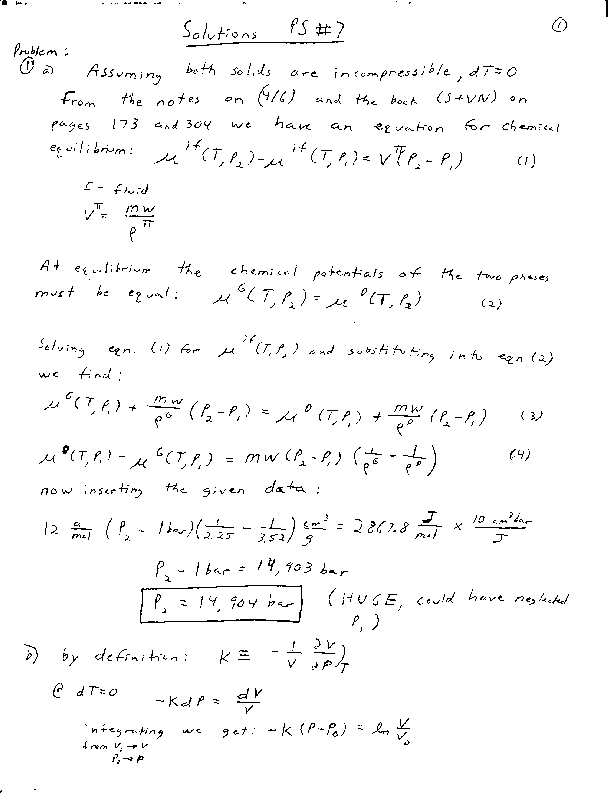 Solutions PS #7
①
Problem:
① a) Assuming both solids are incompressible, dT=0
From the notes on (4/6) and the book (S+VN) on
pages 173 and 304 we have an equation for chemical
equilibrium: μ^if(T,P₂)-μ^if(T,P₁) = V^π(P₂-P₁) (1)
f - fluid
V^π = mw/ρ^π
At equilibrium the chemical potentials of the two phases
must be equal: μ^G(T,P₂) = μ^D(T,P₂) (2)
Solving eqn. (1) for μ^if(T,P₂) and substituting into eqn (2)
we find:
μ^G(T,P₁) + mw/ρ^G (P₂-P₁) = μ^D(T,P₁) + mw/ρ^D (P₂-P₁) (3)
μ^D(T,P₁) - μ^G(T,P₁) = mw(P₂-P₁) (1/ρ^G - 1/ρ^D) (4)
now inserting the given data:
12 g/mol (P₂ - 1bar)(1/2.25 - 1/3.52) cm³/g = 2867.8 J/mol × 10 cm³bar/J
P₂ - 1bar = 14,903 bar
P₂ = 14,904 bar (HUGE, could have neglected
P₁)
b) by definition: K ≡ - 1/V ∂V/∂P)_T
@ dT=0 -KdP = dV/V
integrating we get: -K(P-P₀) = ln V/V₀
from V₀→V
P₀→P